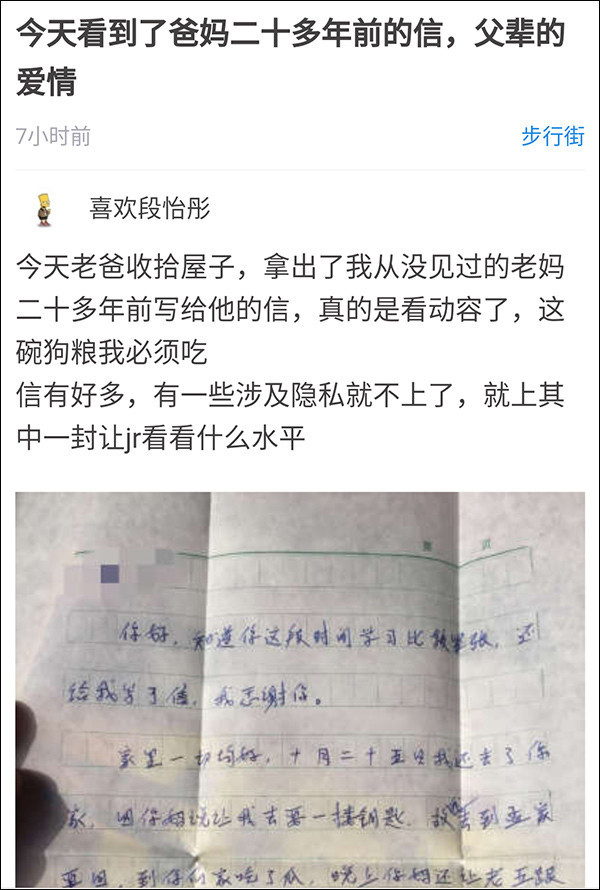 今天看到了爸妈二十多年前的信，父辈的
爱情
7小时前
步行街
喜欢段怡彤
今天老爸收拾屋子，拿出了我从没见过的老妈
二十多年前写给他的信，真的是看动容了，这
碗狗粮我必须吃
信有好多，有一些涉及隐私就不上了，就上其
中一封让jr看看什么水平
第 页
你好，知道你这段时间学习比较紧张，还
给我写了信，我忘谢你。
家里一切均好，十月二十五日我还去了你
家，因你妈说让我去要一搂钥匙，故去到
到你们家吃了瓜，晚上你妈还让老五跟